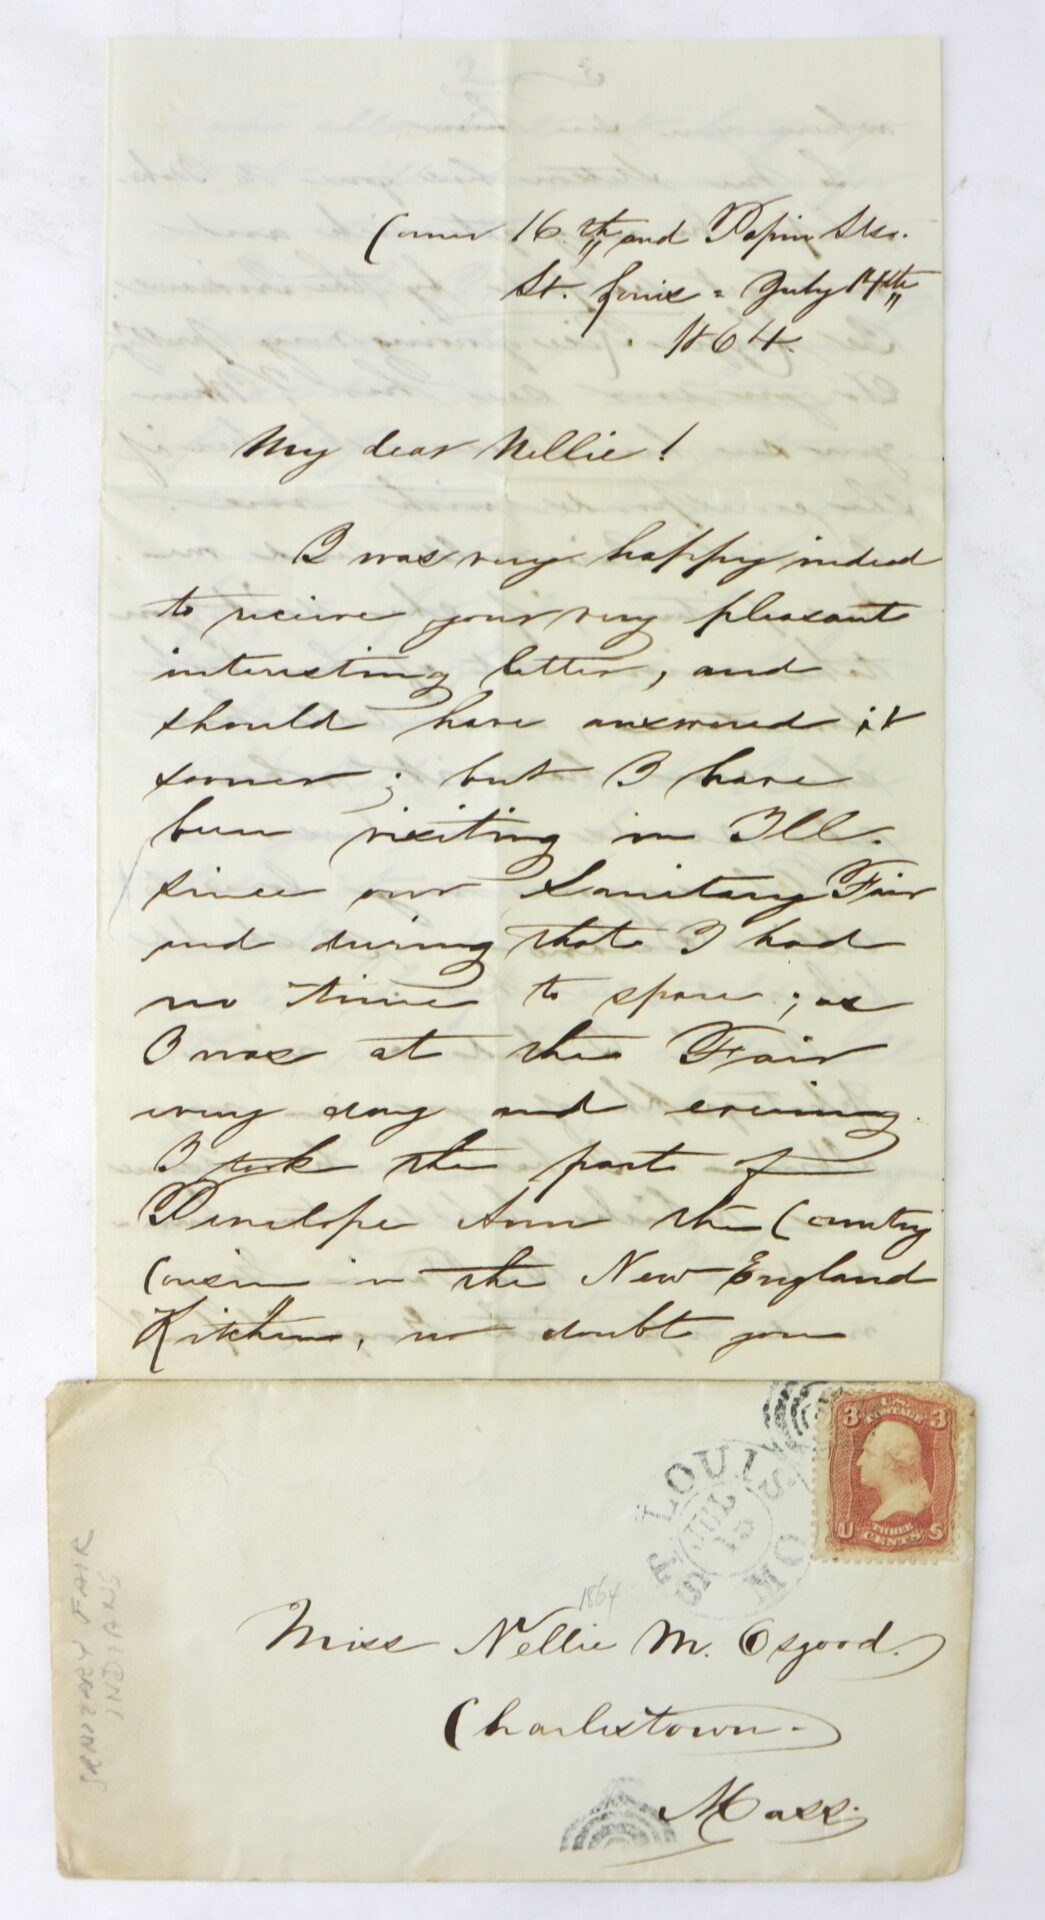 Corner 16th and Papin Sts.
St. Louis = July 14th
1864.
My dear Nellie!
I was very happy indeed
to recieve your very pleasant
interesting letter, and
should have answered it
sooner; but I have
been visiting in Ill.
since our Sanitary Fair
and during that I had
no time to spare; as
I was at the Fair
every day and evening.
I took the part of
Penelope Ann the Country
Cousin in the New England
Kitchen, no doubt you
3 3
U.S.
POSTAGE
U S
THREE
CENTS
ST LOUIS MO
JUL
1864
Miss Nellie M. Osgood.
Charlestown.
Mass.
SANITARY FAIR
INDIANS